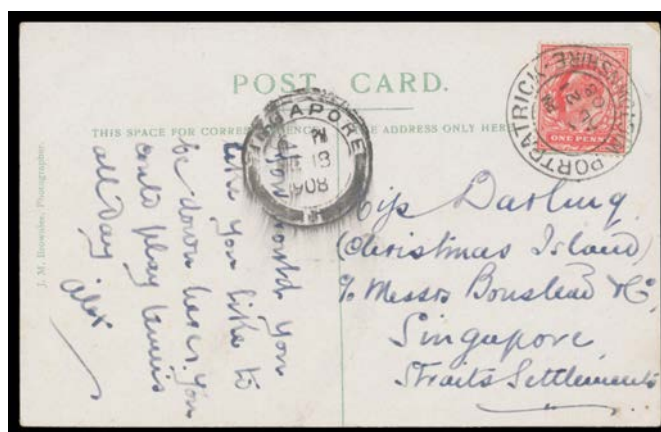 POST CARD.
THIS SPACE FOR CORRESPONDENCE ADDRESS ONLY HERE
J. M. Brownlee, Photographer.
SINGAPORE
PORTPATRICK
ONE PENNY
would you
like you like to
be down here. You
could play tennis
all day.
Alex
Miss Darling
(Christmas Island)
c/o Messrs Boustead & Co.
Singapore
Straits Settlements